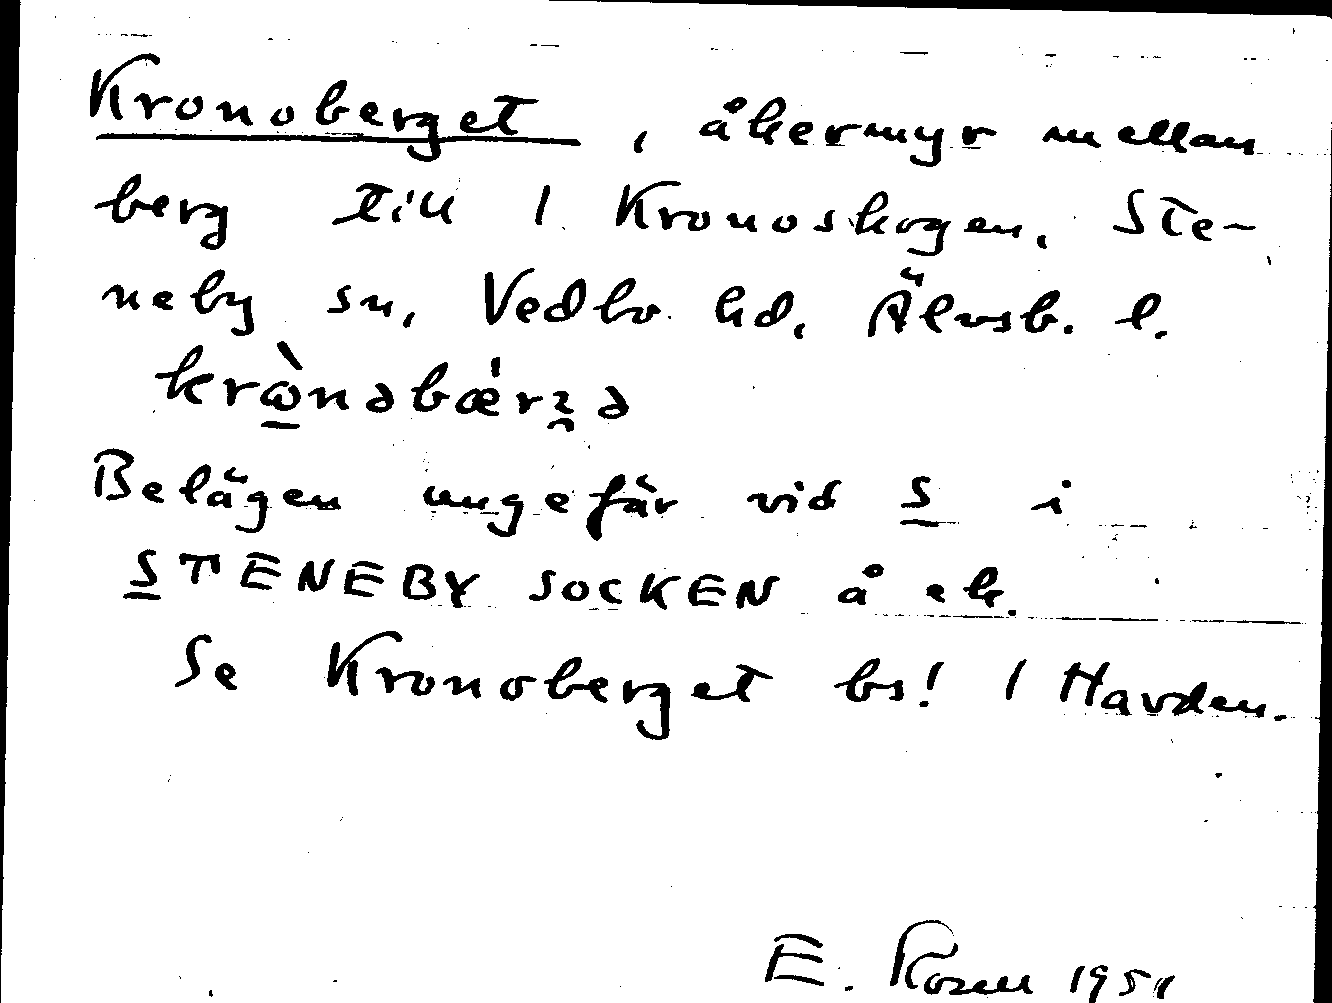 Kronoberget, åkermyr mellan
berg till 1 Kronoskogen, Ste-
neby sn, Vedbo hd, Älvsb. l.
krὼnəbǽrʒ̯ə
Belägen ungefär vid S i
STENEBY SOCKEN å ek.
Se Kronoberget bs! 1 Harden.
E. Rosell 1951